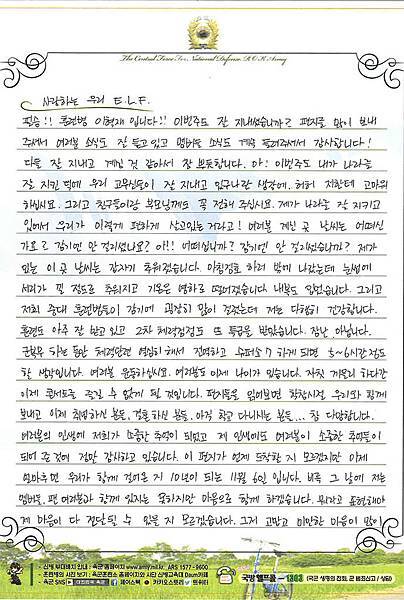 The Central Force For National Defense, R.O.K Army
사랑하는 우리 E.L.F.
필승!! 훈련병 이혁재 입니다!! 이번주도 잘 지내셨습니까? 편지를 많이 보내
주셔서 여러분 소식도 잘 듣고있고 멤버들 소식도 계속 들려주셔서 감사합니다!
다들 잘 지내고 계신 것 같아서 참 뿌듯합니다. 아! 이번주도 내가 나라를
잘 지킨 덕에 우리 고무신들이 잘 지내고 있구나란 생각에. 허허 저한테 고마워
하십시요. 그리고 친구들이랑 부모님께도 꼭 전해 주십시요. 제가 나라를 잘 지키고
있어서 우리가 이렇게 편하게 살고있는거라고! 여러분 계신 곳 날씨는 어떠신
가요? 감기에만 안 걸리셨나요? 아!! 어떠십니까? 감기에만 안 걸리셨습니까? 제가
있는 이 곳 날씨는 갑자기 추워졌습니다. 아침점호 하러 밖에 나왔는데 눈썹에
서리가 낄 정도로 추워지고 기온은 영하로 떨어졌습니다. 내복도 입었습니다. 그리고
저희 중대 훈련병들이 감기에 굉장히 많이 걸렸는데 저는 다행히 건강합니다.
훈련도 아주 잘 받고 있고 2차 체력검정도 뜨 등급을 받았습니다. 장난 아닙니다.
군복무 하는 동안 체력단련 열심히 해서 전역하고 슈퍼쇼7 하게 되면 5~6시간 정도
할 생각입니다. 여러분 운동하십시요. 여러분도 이제 나이가 있습니다. 자칫 게을리 하다간
이제 콘서트를 즐길 수 없게 될 것입니다. 편지들을 읽어보면 학창시절 우리와 함께
보내고 이제 취업하신 분들, 결혼하신 분들, 아직 학교 다니시는 분들... 참 다양합니다.
여러분의 인생에 저희가 소중한 추억이 되었고 제 인생에도 여러분이 소중한 추억들이
되어 준 것에 정말 감사하고 있습니다. 이 편지가 언제 도착할 지 모르겠지만 이제
얼마후면 우리가 함께 걸어온 지 10년이 되는 11월 6일 입니다. 비록 그 날에 저는
멤버들, 팬 여러분과 함께 있지는 못하지만 마음으로 함께 하겠습니다. 뭐라고 표현해야
제 마음이 다 전달될 수 있을 지 모르겠습니다. 그저 고맙고 미안한 마음이 많이
· 신병 부대배치 안내 : 육군 홈페이지 www.army.mil.kr, ARS 1577-9600
· 훈련병의 사진 보기 : 육군훈련소 홈페이지와 사단 신병교육대 Daum카페
육군 SNS 대한민국 육군 페이스북 카카오스토리 트위터
국방헬프콜 - 1303 (국군 생명의 전화, 군 범죄신고 / 상담)